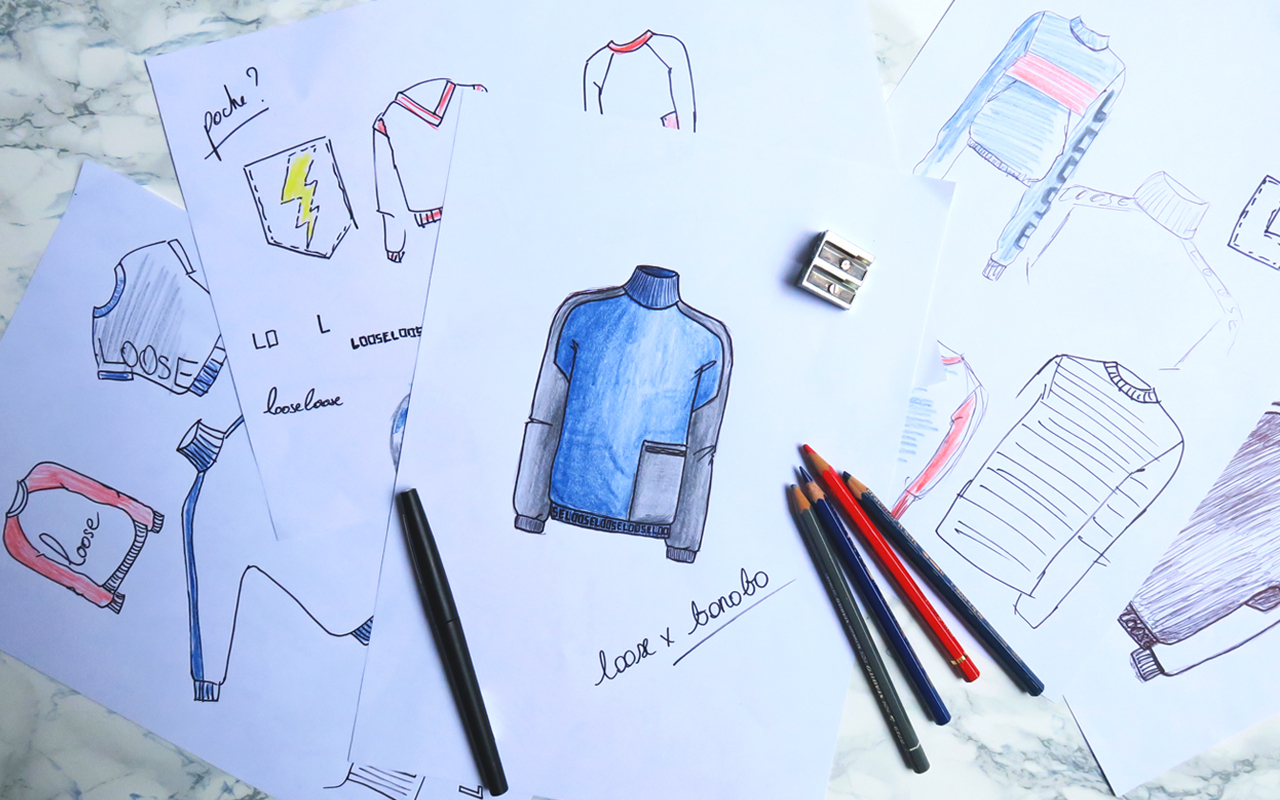 poche ?
LO
L
LOOSELOOS
looseloose
LOOSE
loose
SELOOSELOOSELOOSELOO
loose x bonobo
LOOSE
loose
L